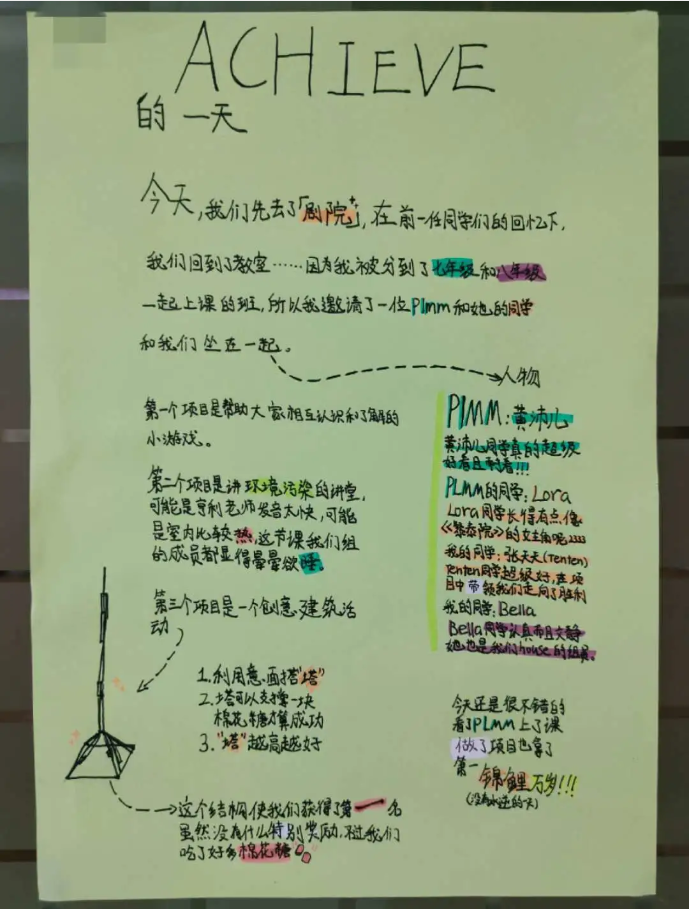 ACHIEVE
的一天
今天,我们先去了「剧院」,在前一任同学们的回忆下,
我们回到了教室……因为我被分到了七年级和八年级
一起上课的班,所以我邀请了一位Plmm和她的同学
和我们坐在一起。
人物
第一个项目是帮助大家相互认识和了解的
小游戏。
第二个项目是讲环境污染的讲堂,
可能是亨利老师发音太快,可能
是室内比较热,这节课我们组
的成员都显得晕晕欲睡。
第三个项目是一个创意建筑活
动
1.利用意面搭"塔"
2.塔可以支撑一块
棉花糖才算成功
3."塔"越高越好
这个结构使我们获得了第一名
虽然没有什么特别奖励,不过我们
吃了好多棉花糖
PlMM:黄沛儿
黄沛儿同学真的超级
好看且耐看!!!
PLMM的同学:Lora
Lora同学长得有点像
《黎泰院》的女主角呢2333
我的同学:张天天(Tenten)
Tenten同学超级好,在项
目中带领我们走向了胜利
我的同学:Bella
Bella同学认真而且文静
她也是我们house的组员。
今天还是很不错的
看了PLMM上了课
做了项目也拿了
第一
锦鲤万岁!!!
(没有水逆的一天)